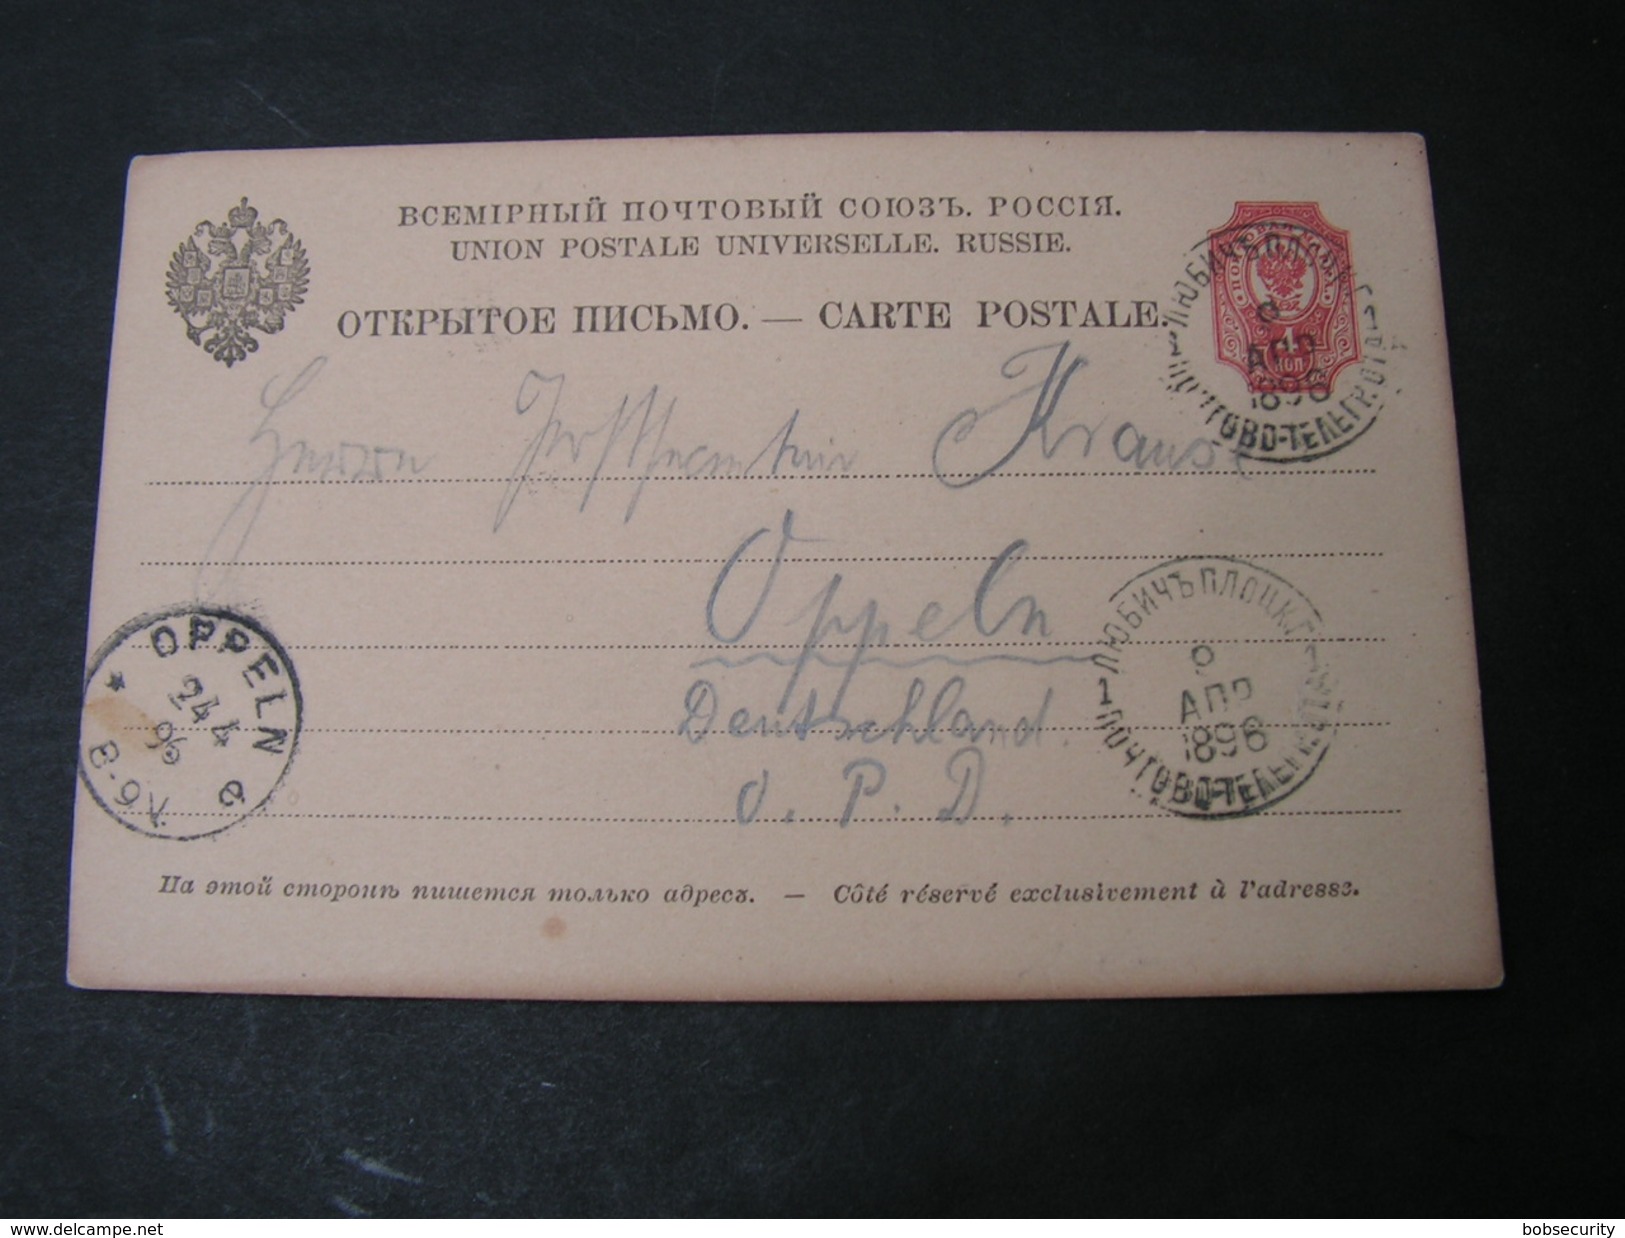 ВСЕМІРНЫЙ ПОЧТОВЫЙ СОЮЗЪ. РОССІЯ.
UNION POSTALE UNIVERSELLE. RUSSIE.
ОТКРЫТОЕ ПИСЬМО. — CARTE POSTALE.
ПОЧТОВАЯ МАРКА
КОП
ЛЮБИЧЪ ПЛОЦ
АПР
1896
1 ПОЧТОВО-ТЕЛЕГР. ОТД. 1
Herrn Kraus
Oppeln
Deutschland.
O. P. D.
OPPELN
24 4
96
8-9V.
ЛЮБИЧЪ ПЛОЦК.Г.
АПР
1896
1 ПОЧТОВО-ТЕЛЕГР. 1
На этой сторонѣ пишется только адресъ. — Côté réservé exclusivement à l'adresse.
www.delcampe.net
bobsecurity